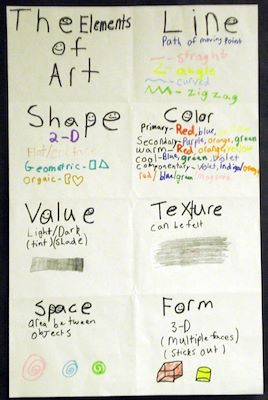 The Elements
of
Art
Line
Path of moving point
straght
angle
curved
zig zag
Shape
2-D
Flat/surface
Geometric-
Orgaic-
Color
Primary-Red, blue, yellow
Secondary-Purple, orange, green
warm-Red orange, yellow
cool-Blue, green, Violet
Violet, Indigo/orange
red/blue/green/Magenta
Value
Light/Dark
(tint)(shade)
Texture
can be felt
Space
area between
objects
Form
3-D
(multiple faces)
(sticks out)